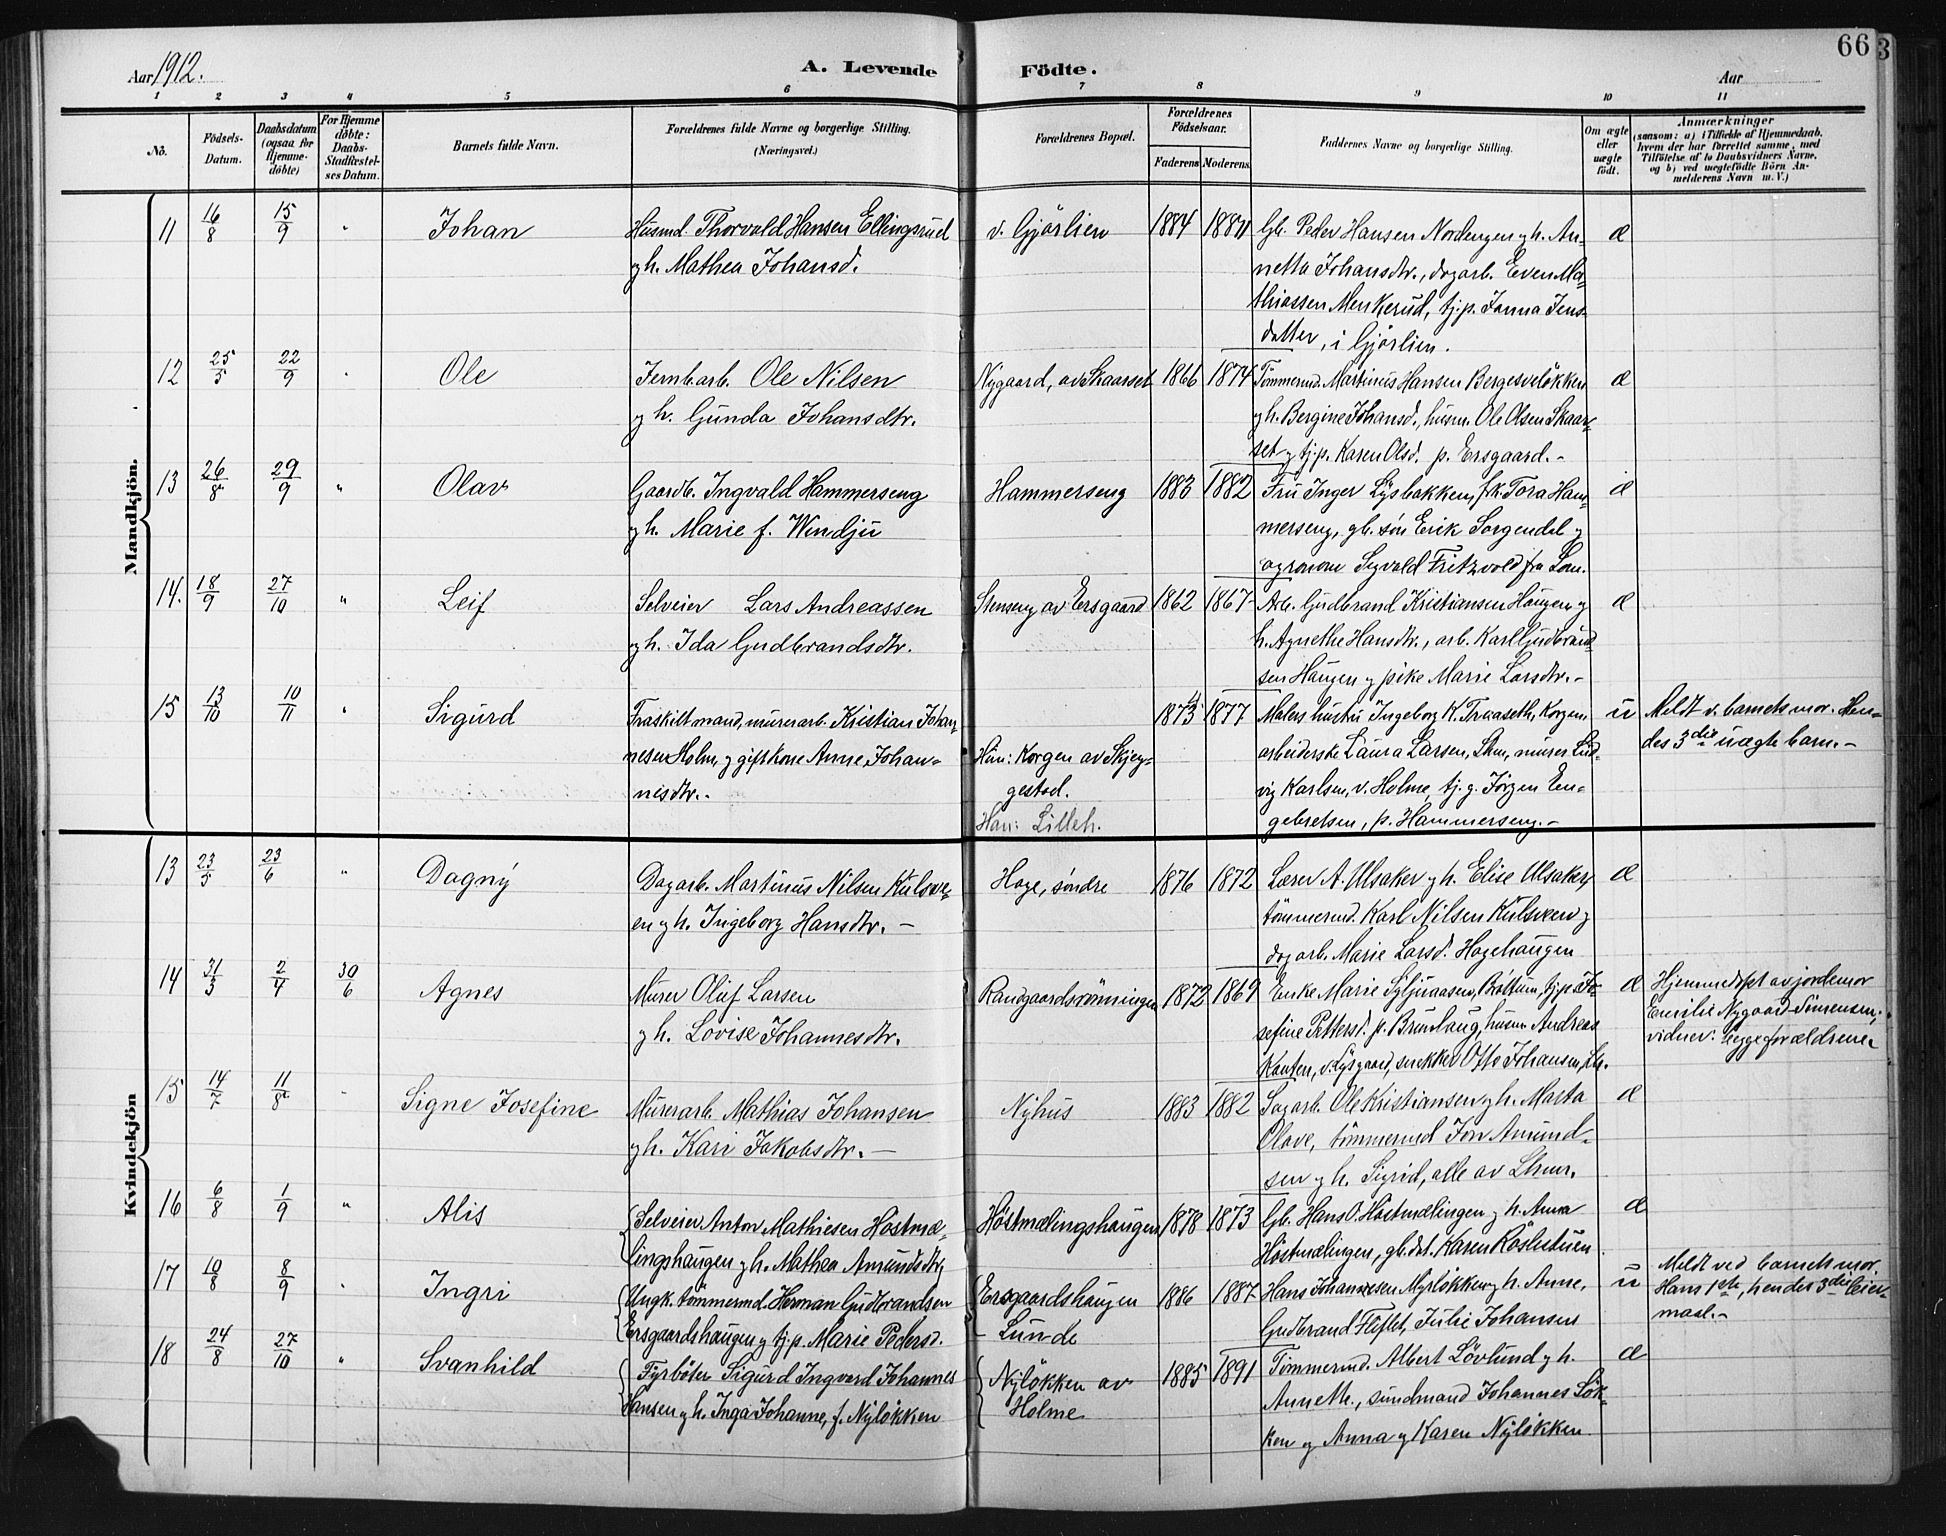 66
3
Aar 1912.
A. Levende Födte.
Aar
1 2 3 4 5 6 7 8 9 10 11
No.
Födsels-
Datum.
Daabsdatum
(ogsaa for
Hjemme-
döbte)
For Hjemme
döbte:
Daabs-
Stadfæstel-
ses Datum.
Barnets fulde Navn.
Forældrenes fulde Navne og borgerlige Stilling.
(Næringsvei.)
Forældrenes Bopæl.
Forældrenes
Födselsaar.
Faderens Moderens
Faddernes Navne og borgerlige Stilling.
Om ægte
eller
uægte
født.
Anmærkninger
(saasom: a) i Tilfælde af Hjemmedaab.
hvem der har forrettet samme, med
Tilföielse af to Daabsvidners Navne,
og b) ved uægtefödte Börn An-
melderens Navn m. V.)
Mandkjön.
11 16/8 15/9 " Johan
Husmd. Thorvald Hansen Ellingsrud
og h. Mathea Johansd.
v. Gjörlien 1884
Gb. Peder Hansen Nordengen og h. An-
netta Johansdtr., dagarb. Even Ma-
thiassen Menkerud, tj.p. Janna Jens-
datter, i Gjörlien.
æ
12 25/5 22/9 " Ole
Jernb.arb. Ole Nilsen
og h. Gunda Johansdtr.
Nygaard, av Skaarset 1866 1874
Tömmermd. Martinus Hansen Bergesvelökken
og h. Bergine Johansd., husm. Ole Olsen Skaar-
set og tj.p. Karen Olsd. p. Ersgaard.-
æ
13 26/8 29/9 " Olav
Gaardb. Ingvald Hammerseng
og h. Marie f. Windju
Hammerseng 1883 1882
Fru Inger Lysbakken, frk. Tora Ham-
merseng, gb. sön Erik Sorgendal og
agronom Sigvald Fritzvold fra Lom.
æ
14. 18/9 27/10 " Leif
Selveier Lars Andreassen
og h. Ida Gudbrandsdtr.
Stenseng av Ersgaard 1862 1867
Arb. Gudbrand Kristiansen Haugen og
h. Agnethe Hansdtr., arb. Karl Gudbrand-
sen Haugen og pike Marie Larsdtr.-
æ
15 13/10 10/11 " Sigurd
Fraskilt mand, murerarb. Kristian Johan-
nesen Holm og gift kone Anne Johan-
nisdtr.
Hun: Korgen av Skjeg-
gestad.
Han: Lilleh.
1873 1877
Malers hustru Ingeborg K. Truaseth, Korgen
arbeiderske Laura Larsen, Lhm, murer Lud-
vig Karlsen, v. Holme, tj.g. Jörgen En-
gebretsen, p. Hammerseng.-
u
Meldt v. barnets mor. Hen-
des 3die uægte barn.-
Kvindekjön
13 23/5 23/6 " Dagny
Dagarb. Martinus Nilsen Kulsve-
en og h. Ingeborg Hansdtr. -
Hage, söndre 1876 1872
Lærer A. Ulsaker og h. Elise Ulsaker,
tömmermd. Karl Nilsen Kulsveen og
dagarb. Marie Larsd. Hagehaugen
æ
14 31/3 2/4 30/6 Agnes
Murer Oluf Larsen
og h. Lovise Johannesdtr.
Randgaardsrönningen 1872 1869
Enke Marie Syljuaasen, Bröttum, tj.p. Jo-
sefine Pettersd. p. Brunlaug, husm. Andreas
Kanten, v. Lysgaard, snekker Otto Johansen, Lh.
æ
Hjemmedöpt av jordemor
Emilie Nygaard Simensen;
vidner: begge forældrene
15 14/7 11/8 " Signe Josefine
Murerarb. Mathias Johansen
og h. Kari Jakobsdtr. -
Nyhus 1883 1882
Sagarb. Ole Kristiansen og h. Marta
Olave, tömmermd Jon Amund-
sen og h. Sigrid, alle av Lhmr.
æ
16 6/8 1/9 " Alis
Selveier Anton Mathiesen Höstmæ-
lingshaugen og h. Mathea Amundsdtr
Höstmælingshaugen 1878 1873
Gb. Hans O. Höstmælingen og h. Anna
Höstmælingen, gb.dat. Karen Röslistuen
æ
17 10/8 8/9 " Ingri
Ungk. tömmermd. Herman Gudbrandsen
Ersgaardshaugen og tj.p. Marie Pedersd.
Ersgaardshaugen
- Lunde
1886 1887
Hans Johannesen Myrlökken og h. Anne,
Gudbrand Fliflet, Julie Johansen
u
Meldt ved barnets mor.
Hans 1ste, hendes 3die leier-
maal.-
18 24/8 27/10 " Svanhild
Fyrböter Sigurd Ingvard Johannes
Hansen og h. Inga Johanne, f. Nylökken
Nylökken av
Holme
1885 1891
Tömmermd. Albert Lövlund og h.
Anne M., sundmand Johannes Lök-
ken og Anna og Karen Nylökken.
æ